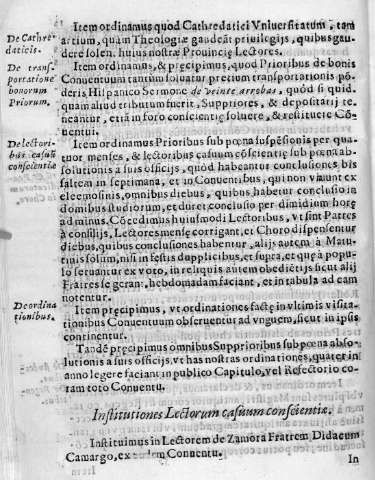 Item ordinamus quod Cathredatici Vniuersitatum, tam
De Cathre-
daticis.
artium, quàm Theologiæ gaudeāt priuilegijs, quibus gau
dere solen. huius nostræ Prouincię Lectores.
De trans-
portatione
bonorum
Priorum.
Item ordinamus, & pręcipimus, quod Prioribus de bonis
Conuentuum tantùm soluatur precium transportationis pō
deris Hispanico Sermone de veinte arrobas, quòd si quid,
quam aliud tributum fuerit, Suppriores, & depositarij te-
neantur, etiā in foro conscientię soluere, & restituere Cō-
uentui.
De lectori-
bus casuū
conscientiæ
Item ordinamus Prioribus sub pœna suspēsionis per qua
tuor menses, & lectoribus casuum cōscientię sub pœna ab-
solutionis à suis officijs, quòd habeantur conclusiones bis
saltem in septimana, et in Conuentibus, qui non viuunt ex
eleemosinis, omnibus diebus, quibus habetur conclusio in
domibus studiorum, et duret conclusio per dimidium horę
ad minus. Cōcedimus huiusmodi Lectoribus, vt sint Patres
à consilijs, Lectores mensę corrigant, et Choro dispensentur
diebus, quibus conclusiones habentur, alijs autem à Matu-
tinis solum, nisi in festis dupplicibus, et supra, et que à popu-
lo seruantur ex voto, in reliquis autem obediēt ijs sicut alij
Fratres se geran, hebdomadam faciant, et in tabula ad eam
notentur.
De ordina
tionibus.
Item pręcipimus, vt ordinationes factę in vltimis visita-
tionibus Conuentuum obseruentur ad vnguem, sicut in ipsis
continentur.
Tandē pręcipimus omnibus Supprioribus sub pœna abso-
lutionis à suis officijs, vt has nostras ordinationes, quater in
anno legere faciant in publico Capitulo, vel Refectorio co-
ram toto Conuentu.
Institutiones Lectorum casuum conscientiæ.
Instituimus in Lectorem de Zamora Fratrem Didacum
Camargo, ex eodem Conuentu.
In